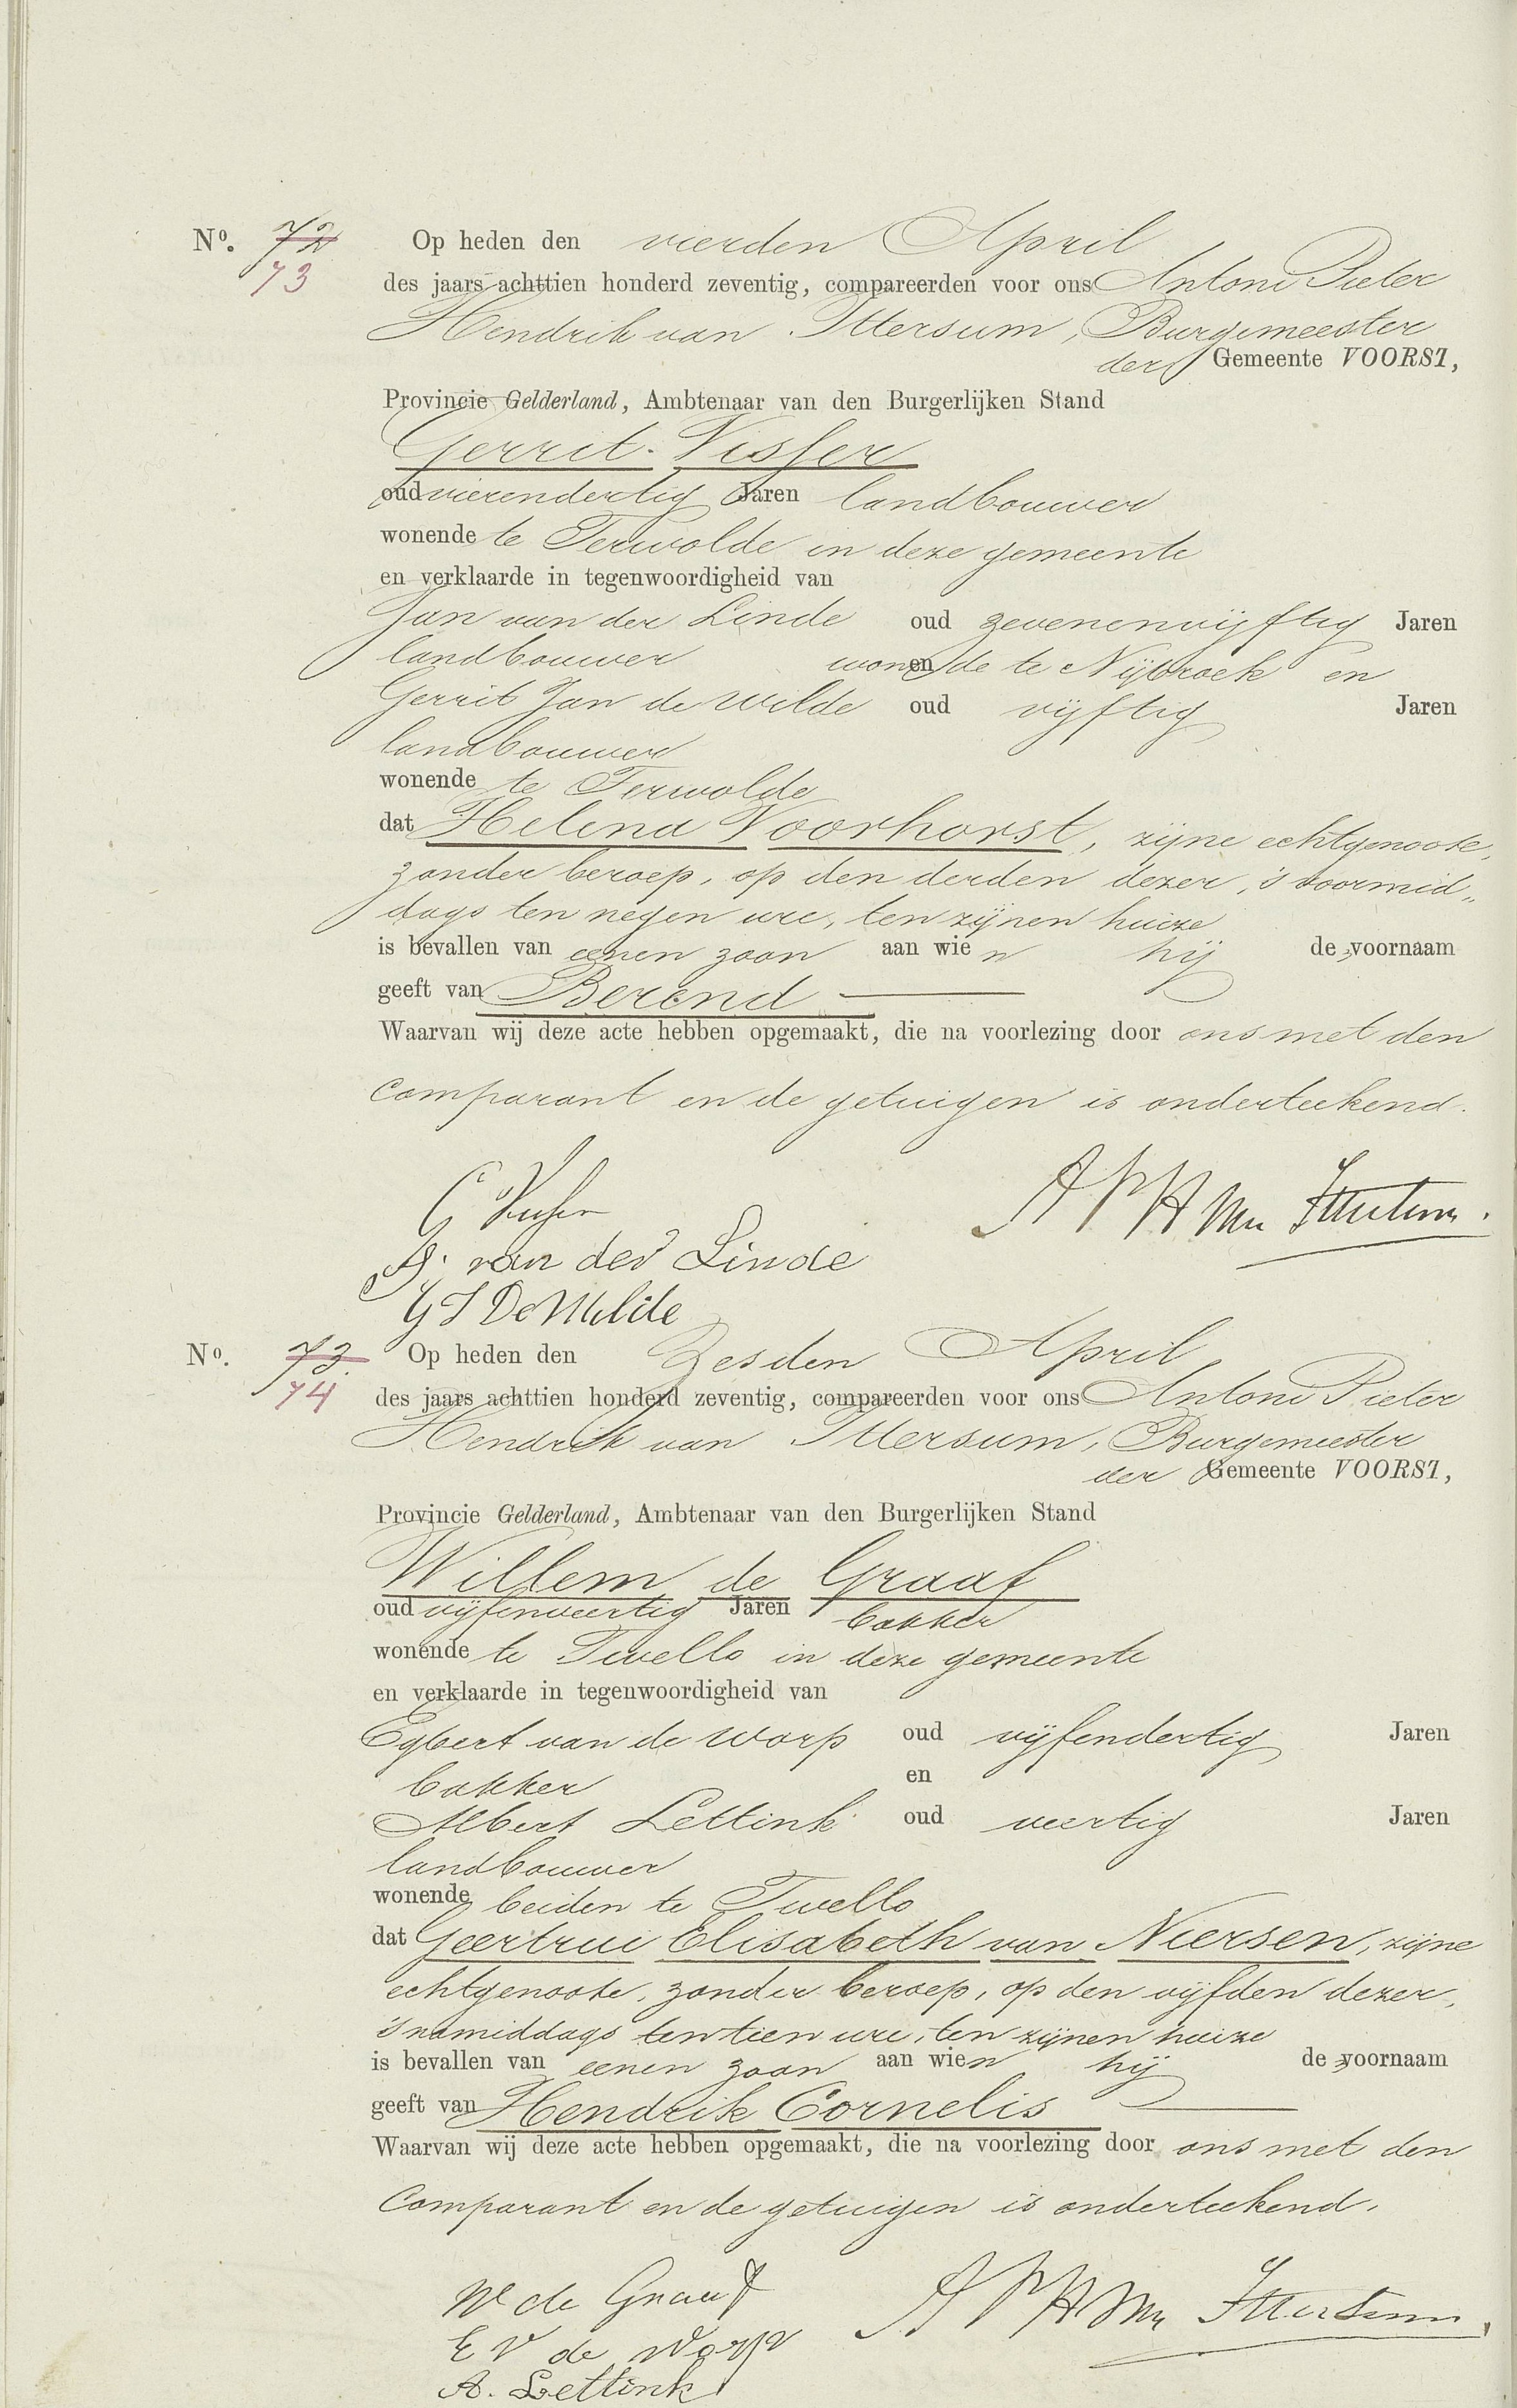 No. 72 Op heden den vierden April
73
des jaars achttien honderd zeventig, compareerden voor ons Antoni Pieter
Hendrik van Ittersum, Burgemeester
der Gemeente VOORST,
Provincie Gelderland, Ambtenaar van den Burgerlijken Stand
Gerrit Visser
oud vierendertig Jaren landbouwer
wonende te Terwolde in deze gemeente
en verklaarde in tegenwoordigheid van
Jan van der Linde oud zevenenvijftig Jaren
landbouwer wonende te Nijbroek en
Gerrit Jan de Wilde oud vijftig Jaren
landbouwer
wonende te Terwolde
dat Helena Voorhorst, zijne echtgenoote,
zonder beroep, op den derden dezer, 's voormid„
dags ten negen ure, ten zijnen huize
is bevallen van eenen zoon aan wien hij de voornaam
geeft van Berend
Waarvan wij deze acte hebben opgemaakt, die na voorlezing door ons met den
comparant en de getuigen is onderteekend.
G Visser
APH van Ittersum.
J. van der Linde
G J De Wilde
No. 73. Op heden den Zesden April
74
des jaars achttien honderd zeventig, compareerden voor ons Antoni Pieter
Hendrik van Ittersum, Burgemeester
der Gemeente VOORST,
Provincie Gelderland, Ambtenaar van den Burgerlijken Stand
Willem de Graaf
oud vijfenveertig Jaren bakker
wonende te Twello in deze gemeente
en verklaarde in tegenwoordigheid van
Egbert van de Worp oud vijfendertig Jaren
bakker en
Albert Lettink oud veertig Jaren
landbouwer
wonende beiden te Twello
dat Geertrui Elisabeth van Niersen, zijne
echtgenoote, zonder beroep, op den vijfden dezer,
's namiddags ten tien ure, ten zijnen huize
is bevallen van eenen zoon aan wien hij de voornaam
geeft van Hendrik Cornelis
Waarvan wij deze acte hebben opgemaakt, die na voorlezing door ons met den
Comparant en de getuigen is onderteekend.
W de Graaf
APH van Ittersum.
E V de Worp
A. Lettink